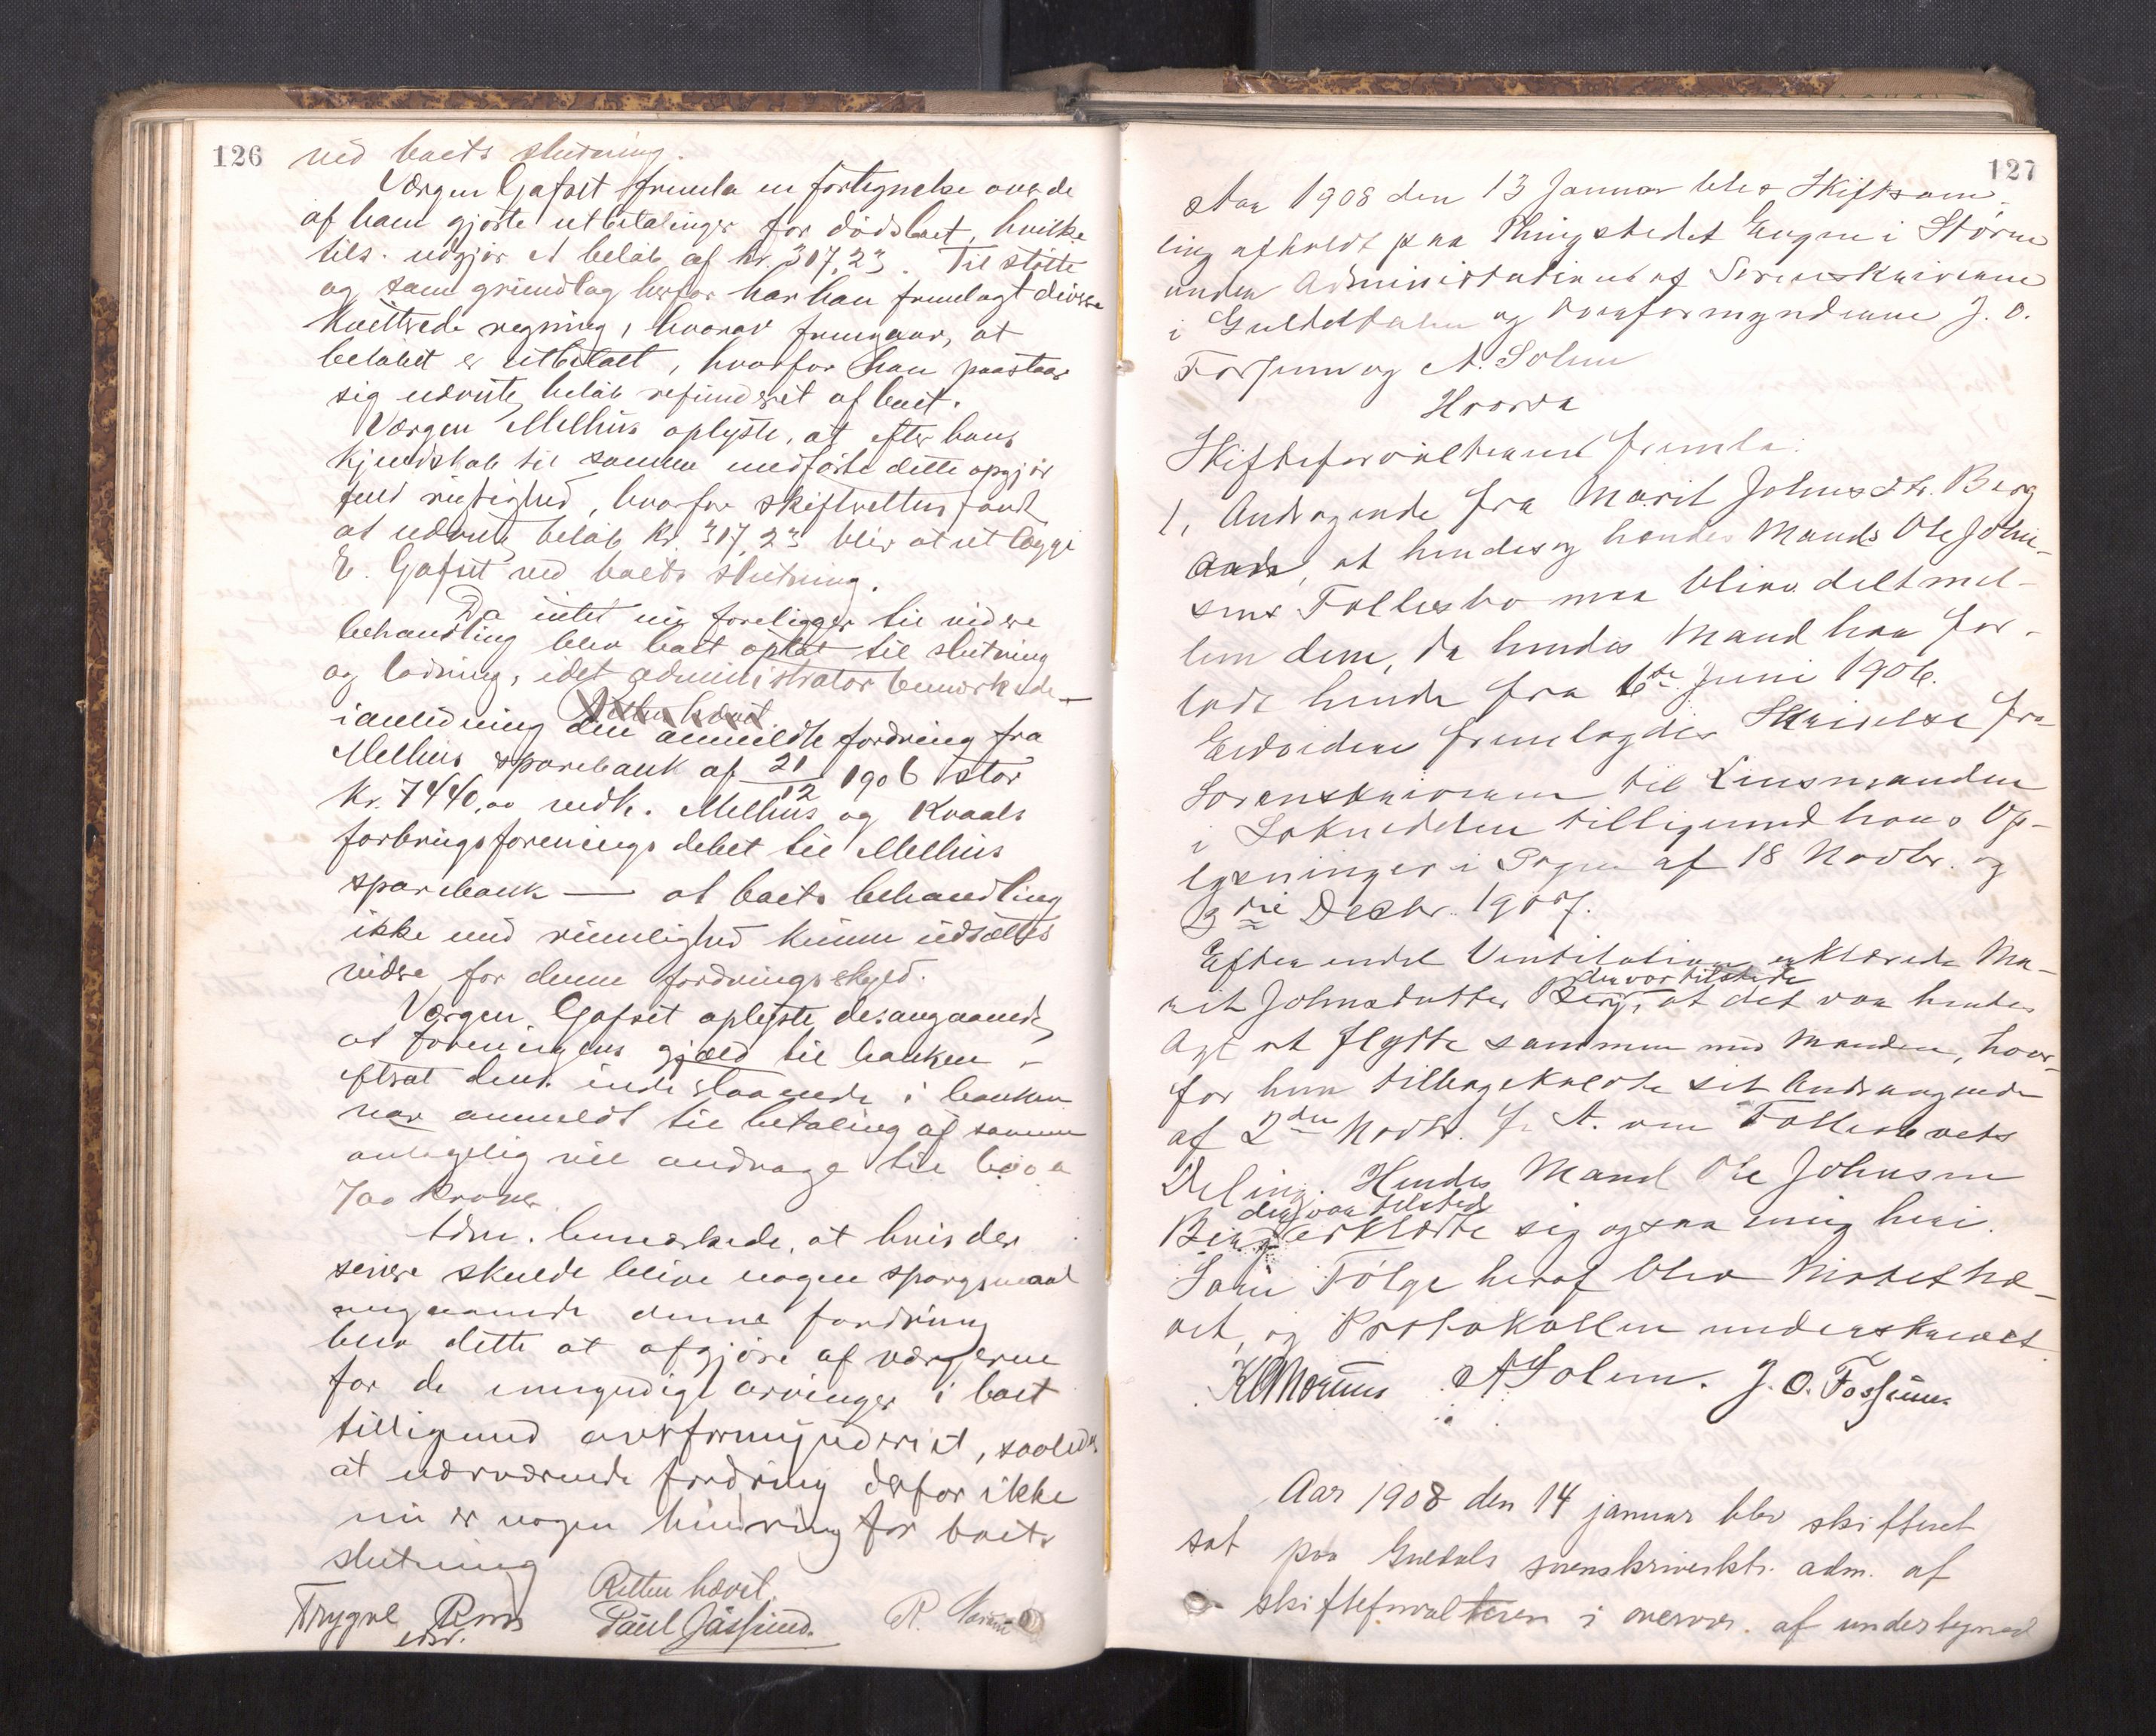 126
ved boets slutning.
Værgen Gafset fremla en fortegnelse over de
af ham gjorte utbetalinger for dødsboet, hvilke
tils. udgjør et beløb af kr. 307,23. Til støtte
og som grundlag herfor har han fremlagt diverse
kvitterede regning, hvorav fremgaar, at
beløbet er utbetalt, hvorfor han paastaar
sig nævnte beløb refunderet af boet.
Værgen Melhus oplyste, at efter hans
kjendskab til samme medførte dette opgjør
fuld rigtighed, hvorfor skifteretten fandt
at nævnte beløb kr 307,23 blir at utlægge
E. Gafset ved boets slutning.
Da intet nu foreligger til videre
behandling blev boet optat til slutning
og lodning, idet administrator bemerkede –
Retten hævet.
i anledning den anmeldte fordring fra
Melhus sparebank af 21/12 1906 stor
kr. 7440,00 vedk. Melhus og Kvaals
forbrugsforenings debet til Melhus
sparebank — at boets behandling
ikke med rimelighed kunne udsættes
videre for denne fordrings skyld.
Værgen Gafset oplyste desangaaende
at foreningens gjæld til banken –
efterat dens indestaaende i banken
var anmeldt til betaling af samme
antagelig vil andrage til 600 a
700 kroner
Adm. bemærkede, at hvis der
senere skulde blive nogen spørgsmaal
angaaende denne fordring
blev dette at afgjøre af værgerne
for de umyndige arvinger i boet
tilligemed overformynderiet, saaledes
at nærværende fordring derfor ikke
nu er nogen hindring for boets
slutning
Retten hævet.
Trygve Paul Jássund. R.
127
Aar 1908 den 13 Januar blev Skiftesam-
ling afholdt paa Thingstedet Engen i Støren
under Administration af Sorenskriveren
i Guldalen og Overformynderne J. O.
Fossum og A. Solem
Hvorda
Skifteforvalteren fremla:
1, Andragende fra Marit Johnsdtr. Berg
om, at hendes og hendes Mands Ole John-
sens Fællesbo maa blive delt mel-
lem dem, da hendes Mand har for-
ladt hende fra 6te Juni 1906.
Endvidere fremlagdes Skrivelse fra
Sorenskriveren til Lensmanden
i Soknedalen tilligemed hans Op-
lysninger i Sagen af 18 Novbr. og
3die Decbr. 1907.
Efter endt Ventilation erklærede Ma-
der var tilstede
rit Johnsdatter Berg, at det var hendes
Agt at flytte sammen med Manden, hvor-
for hun tilbagekaldte sit Andragende
af 2den Novbr. f. A. om Fællesboets
Deling. Hendes Mand Ole Johnsen
der var tilstede
Berg erklærte sig ogsaa enig heri.
Som Følge heraf blev Mødet hæ-
vet, og Protokollen underskrevet.
A Solem. J. O. Fossum
Aar 1908 den 14 januar blev skifteret
sat paa Guldals sorenskriverktr. adm. af
skifteforvalteren i overvær. af undertegnede